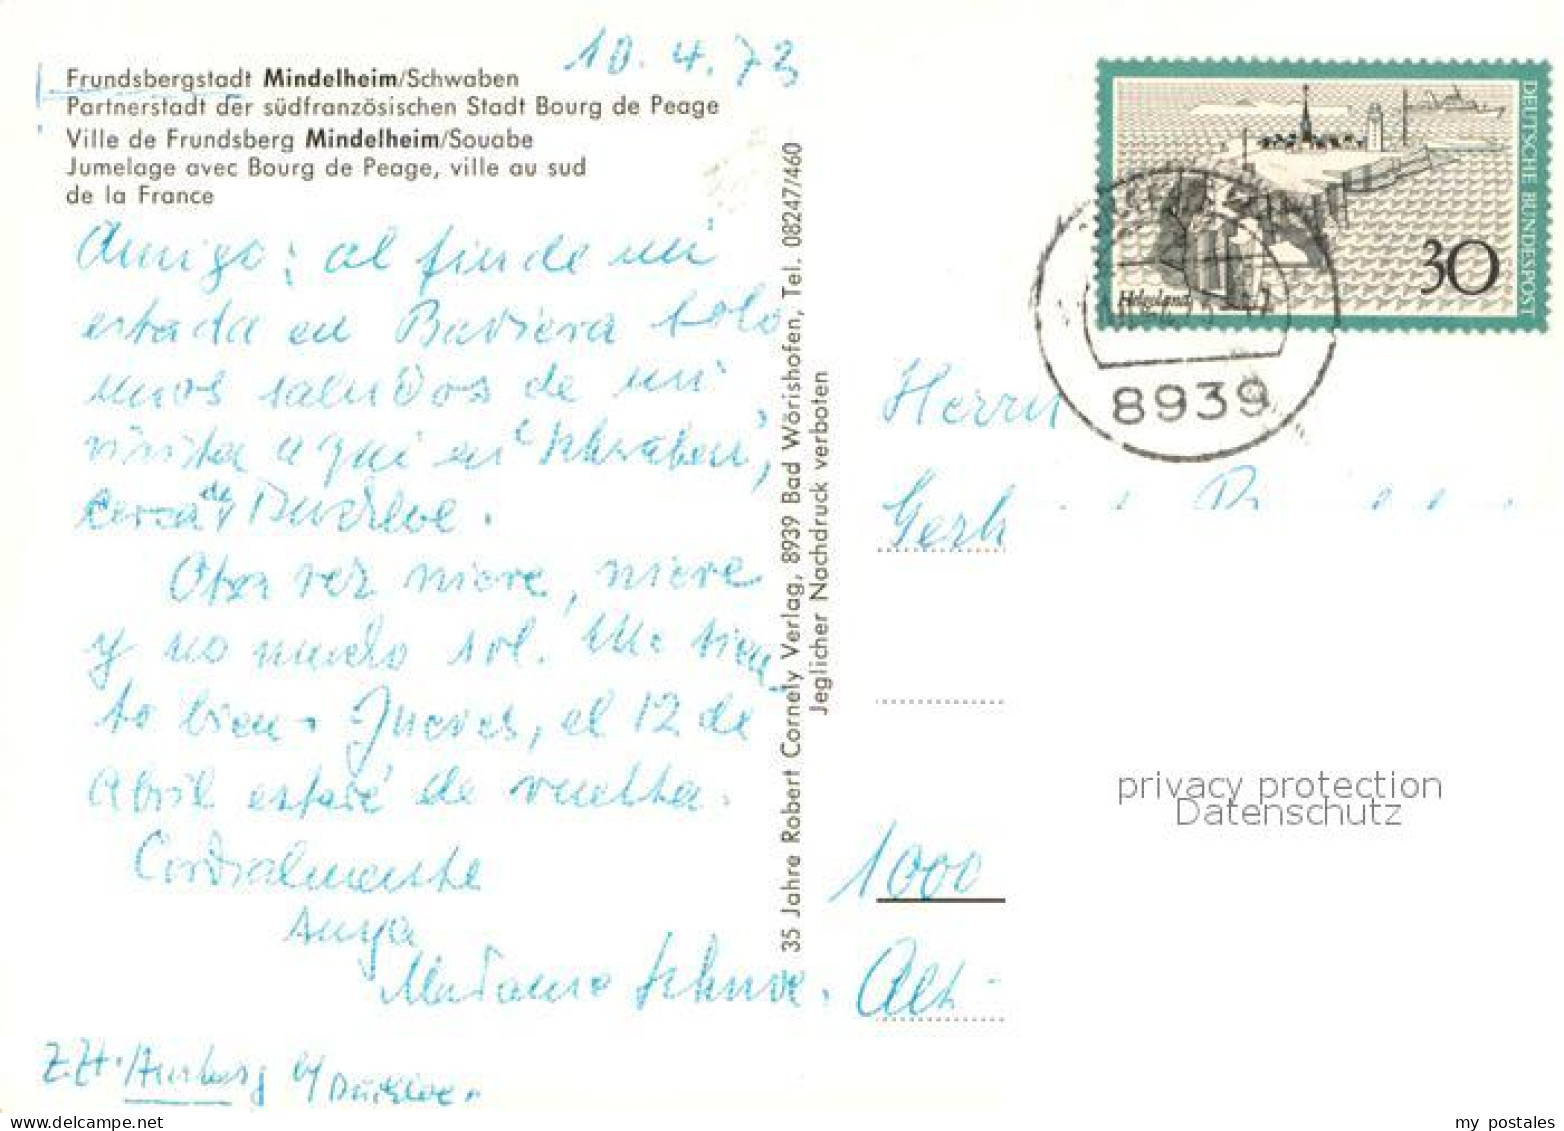 10.4.73
Frundsbergstadt Mindelheim/Schwaben
Partnerstadt der südfranzösischen Stadt Bourg de Peage
Ville de Frundsberg Mindelheim/Souabe
Jumelage avec Bourg de Peage, ville au sud
de la France
Amigo: al fin de mi
estada en Baviera solo
unos saludos de mi
visita aqui en "Schwaben",
cerca de Buchloe.
Otra vez nieve, nieve
y no mucho sol. Me sien
to bien. Jueves, el 12 de
Abril estaré de vuelta.
Cordialmente
suya
Madame
Z.Zt. b/Buchloe.
35 Jahre Robert Cornely Verlag, 8939 Bad Wörishofen, Tel. 08247/460
Jeglicher Nachdruck verboten
DEUTSCHE BUNDESPOST
30
Helgoland
8939
Herrn
Gerh
1000
Alt-
privacy protection
Datenschutz
my postales